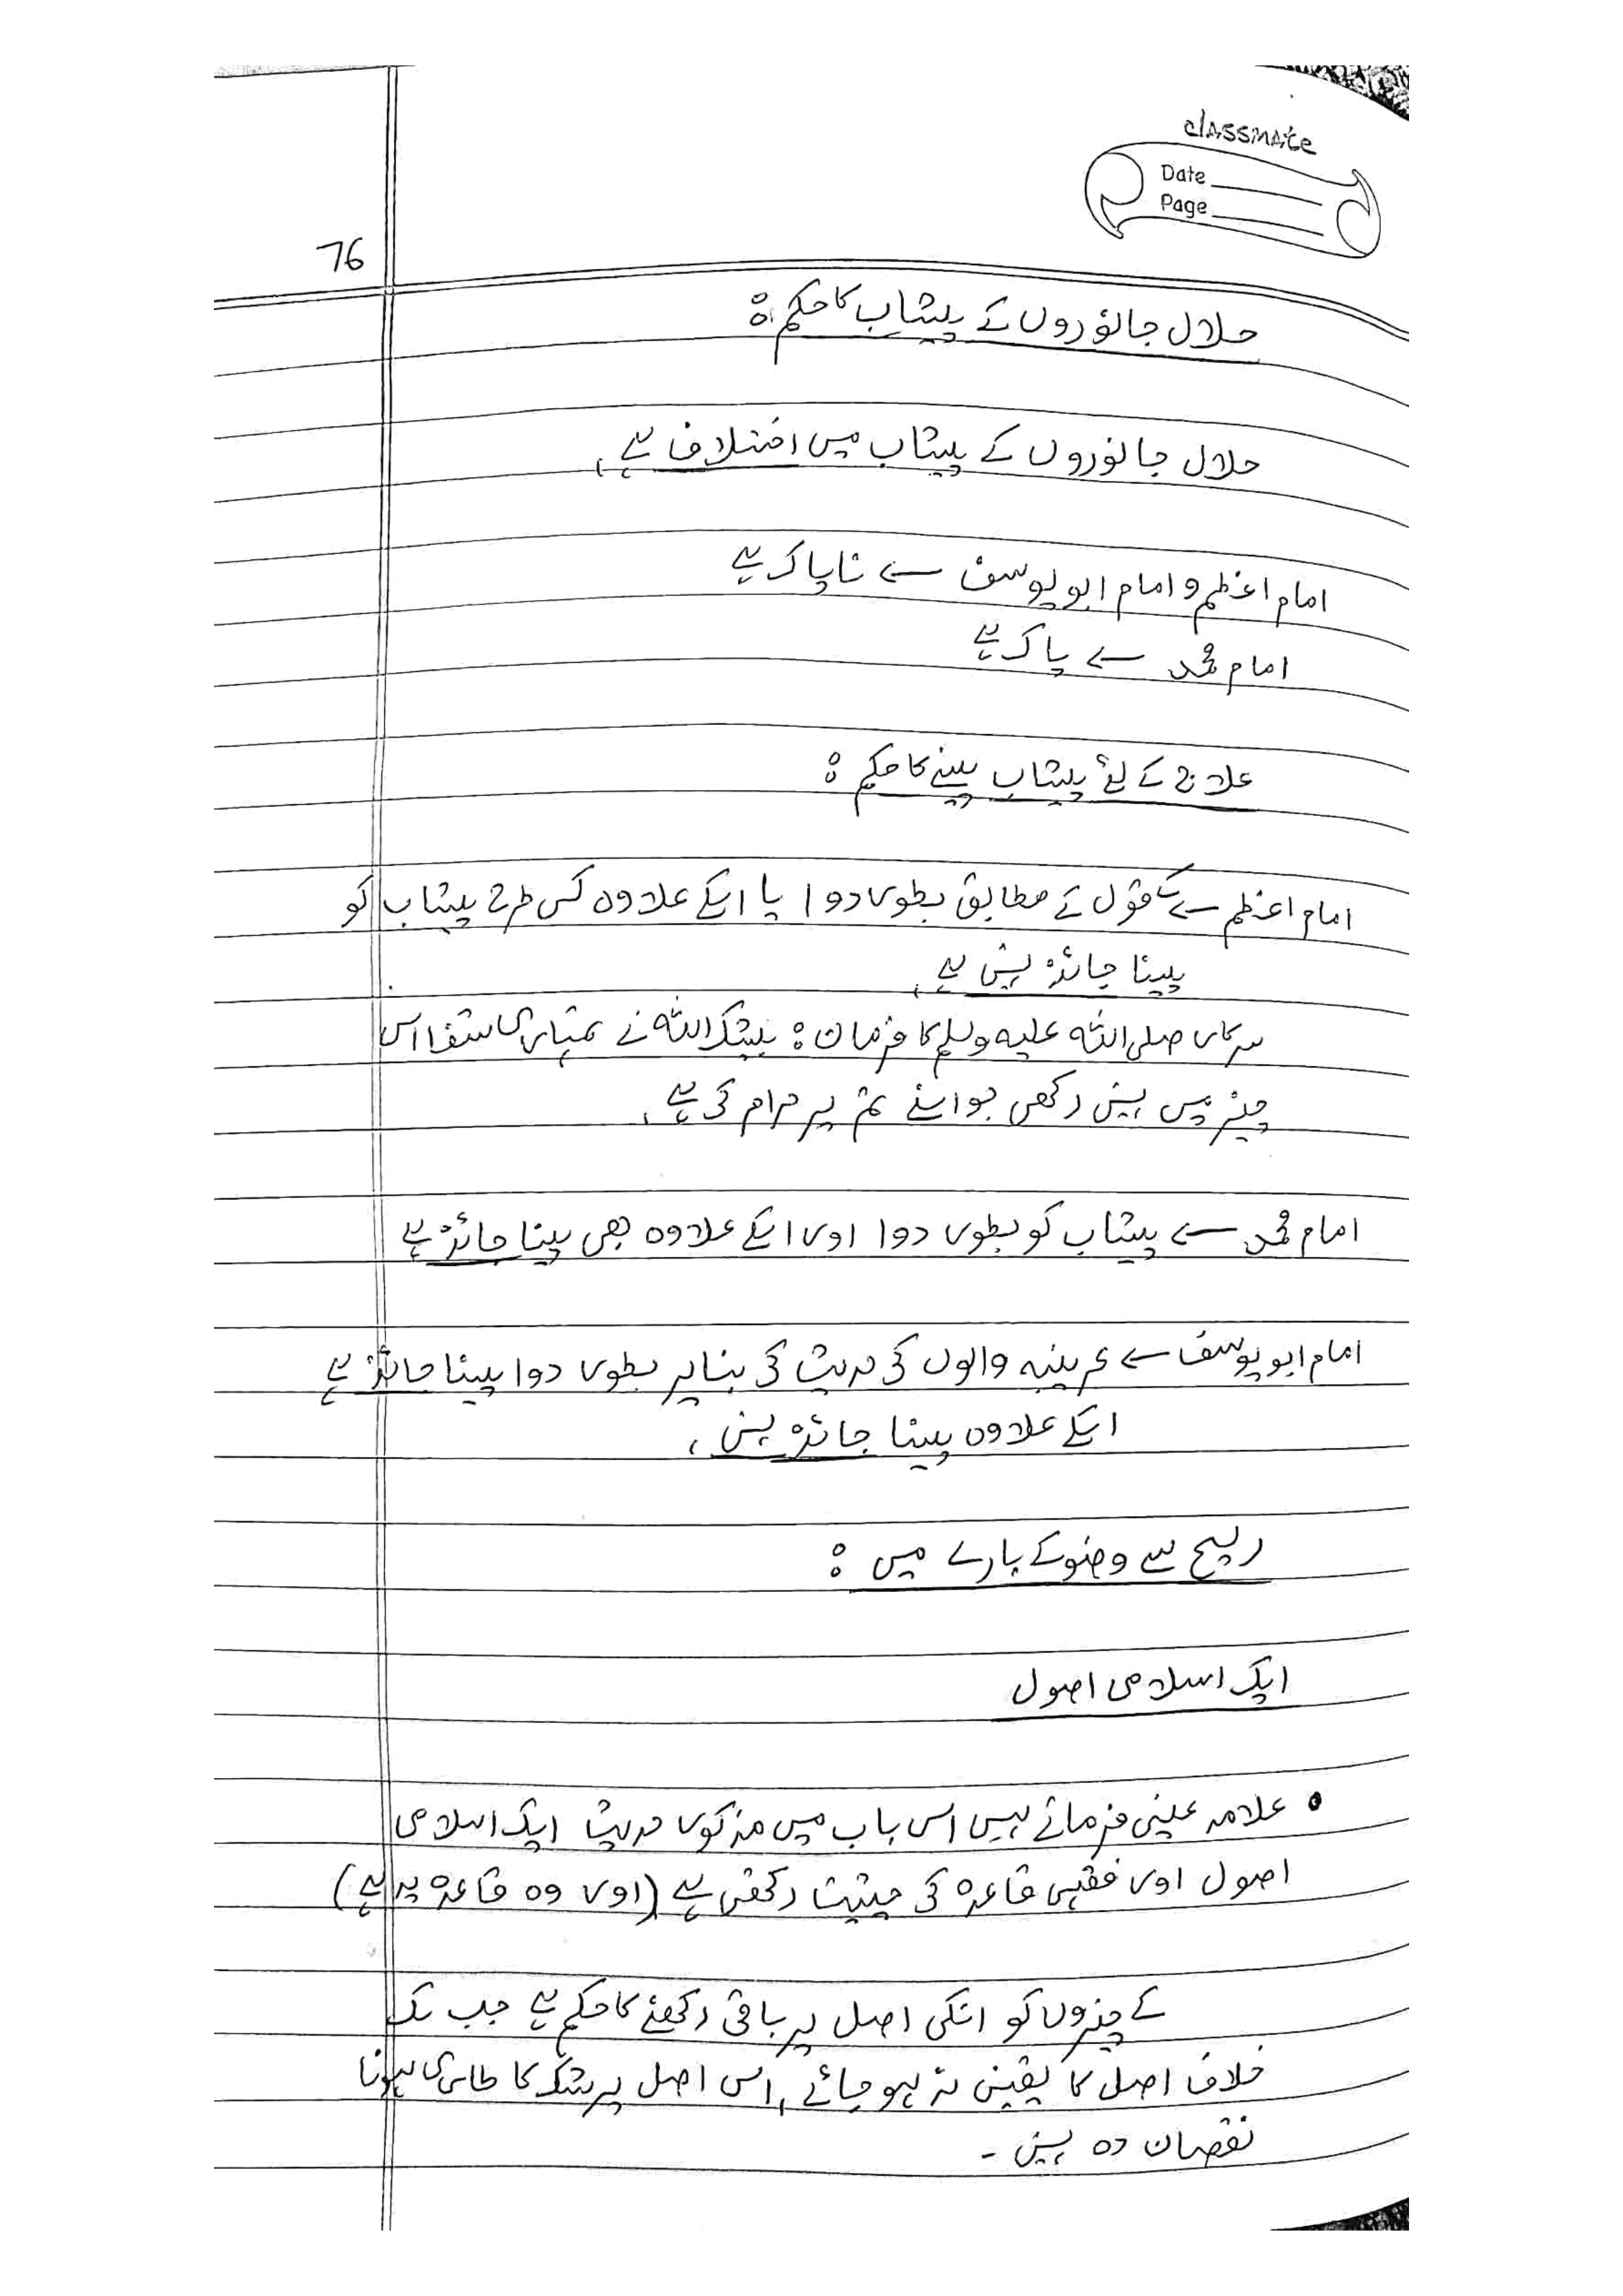 classmate
Date
Page
76
حلال جانوروں کے پیشاب کا حکم :
حلال جانوروں کے پیشاب میں اختلاف ہے،
امام اعظم و امام ابو یوسف ← ناپاک ہے
امام محمد ← پاک ہے
علاج کے لئے پیشاب پینے کا حکم :
امام اعظم ← کے قول کے مطابق بطور دوا یا اسکے علاوہ کسی طرح پیشاب کو
پینا جائز نہیں ہے،
سرکار صلی اللہ علیہ وسلم کا فرمان : بیشک اللہ نے تمہاری شفا اس
چیز میں نہیں رکھی جو اسنے تم پر حرام کی ہے،
امام محمد ← پیشاب کو بطور دوا اور اسکے علاوہ بھی پینا جائز ہے
امام ابو یوسف ← عرینہ والوں کی حدیث کی بنا پر بطور دوا پینا جائز ہے
اسکے علاوہ پینا جائز نہیں،
ریح سے وضو کے بارے میں :
ایک اسلامی اصول
• علامہ عینی فرماتے ہیں اس باب میں مذکور حدیث ایک اسلامی
اصول اور فقہی قاعدہ کی حیثیت رکھتی ہے (اور وہ قاعدہ یہ ہے)
کے چیزوں کو انکی اصل پر باقی رکھنے کا حکم ہے جب تک
خلاف اصل کا یقین نہ ہو جائے، اس اصل پر شک کا طاری ہونا
نقصان دہ نہیں -